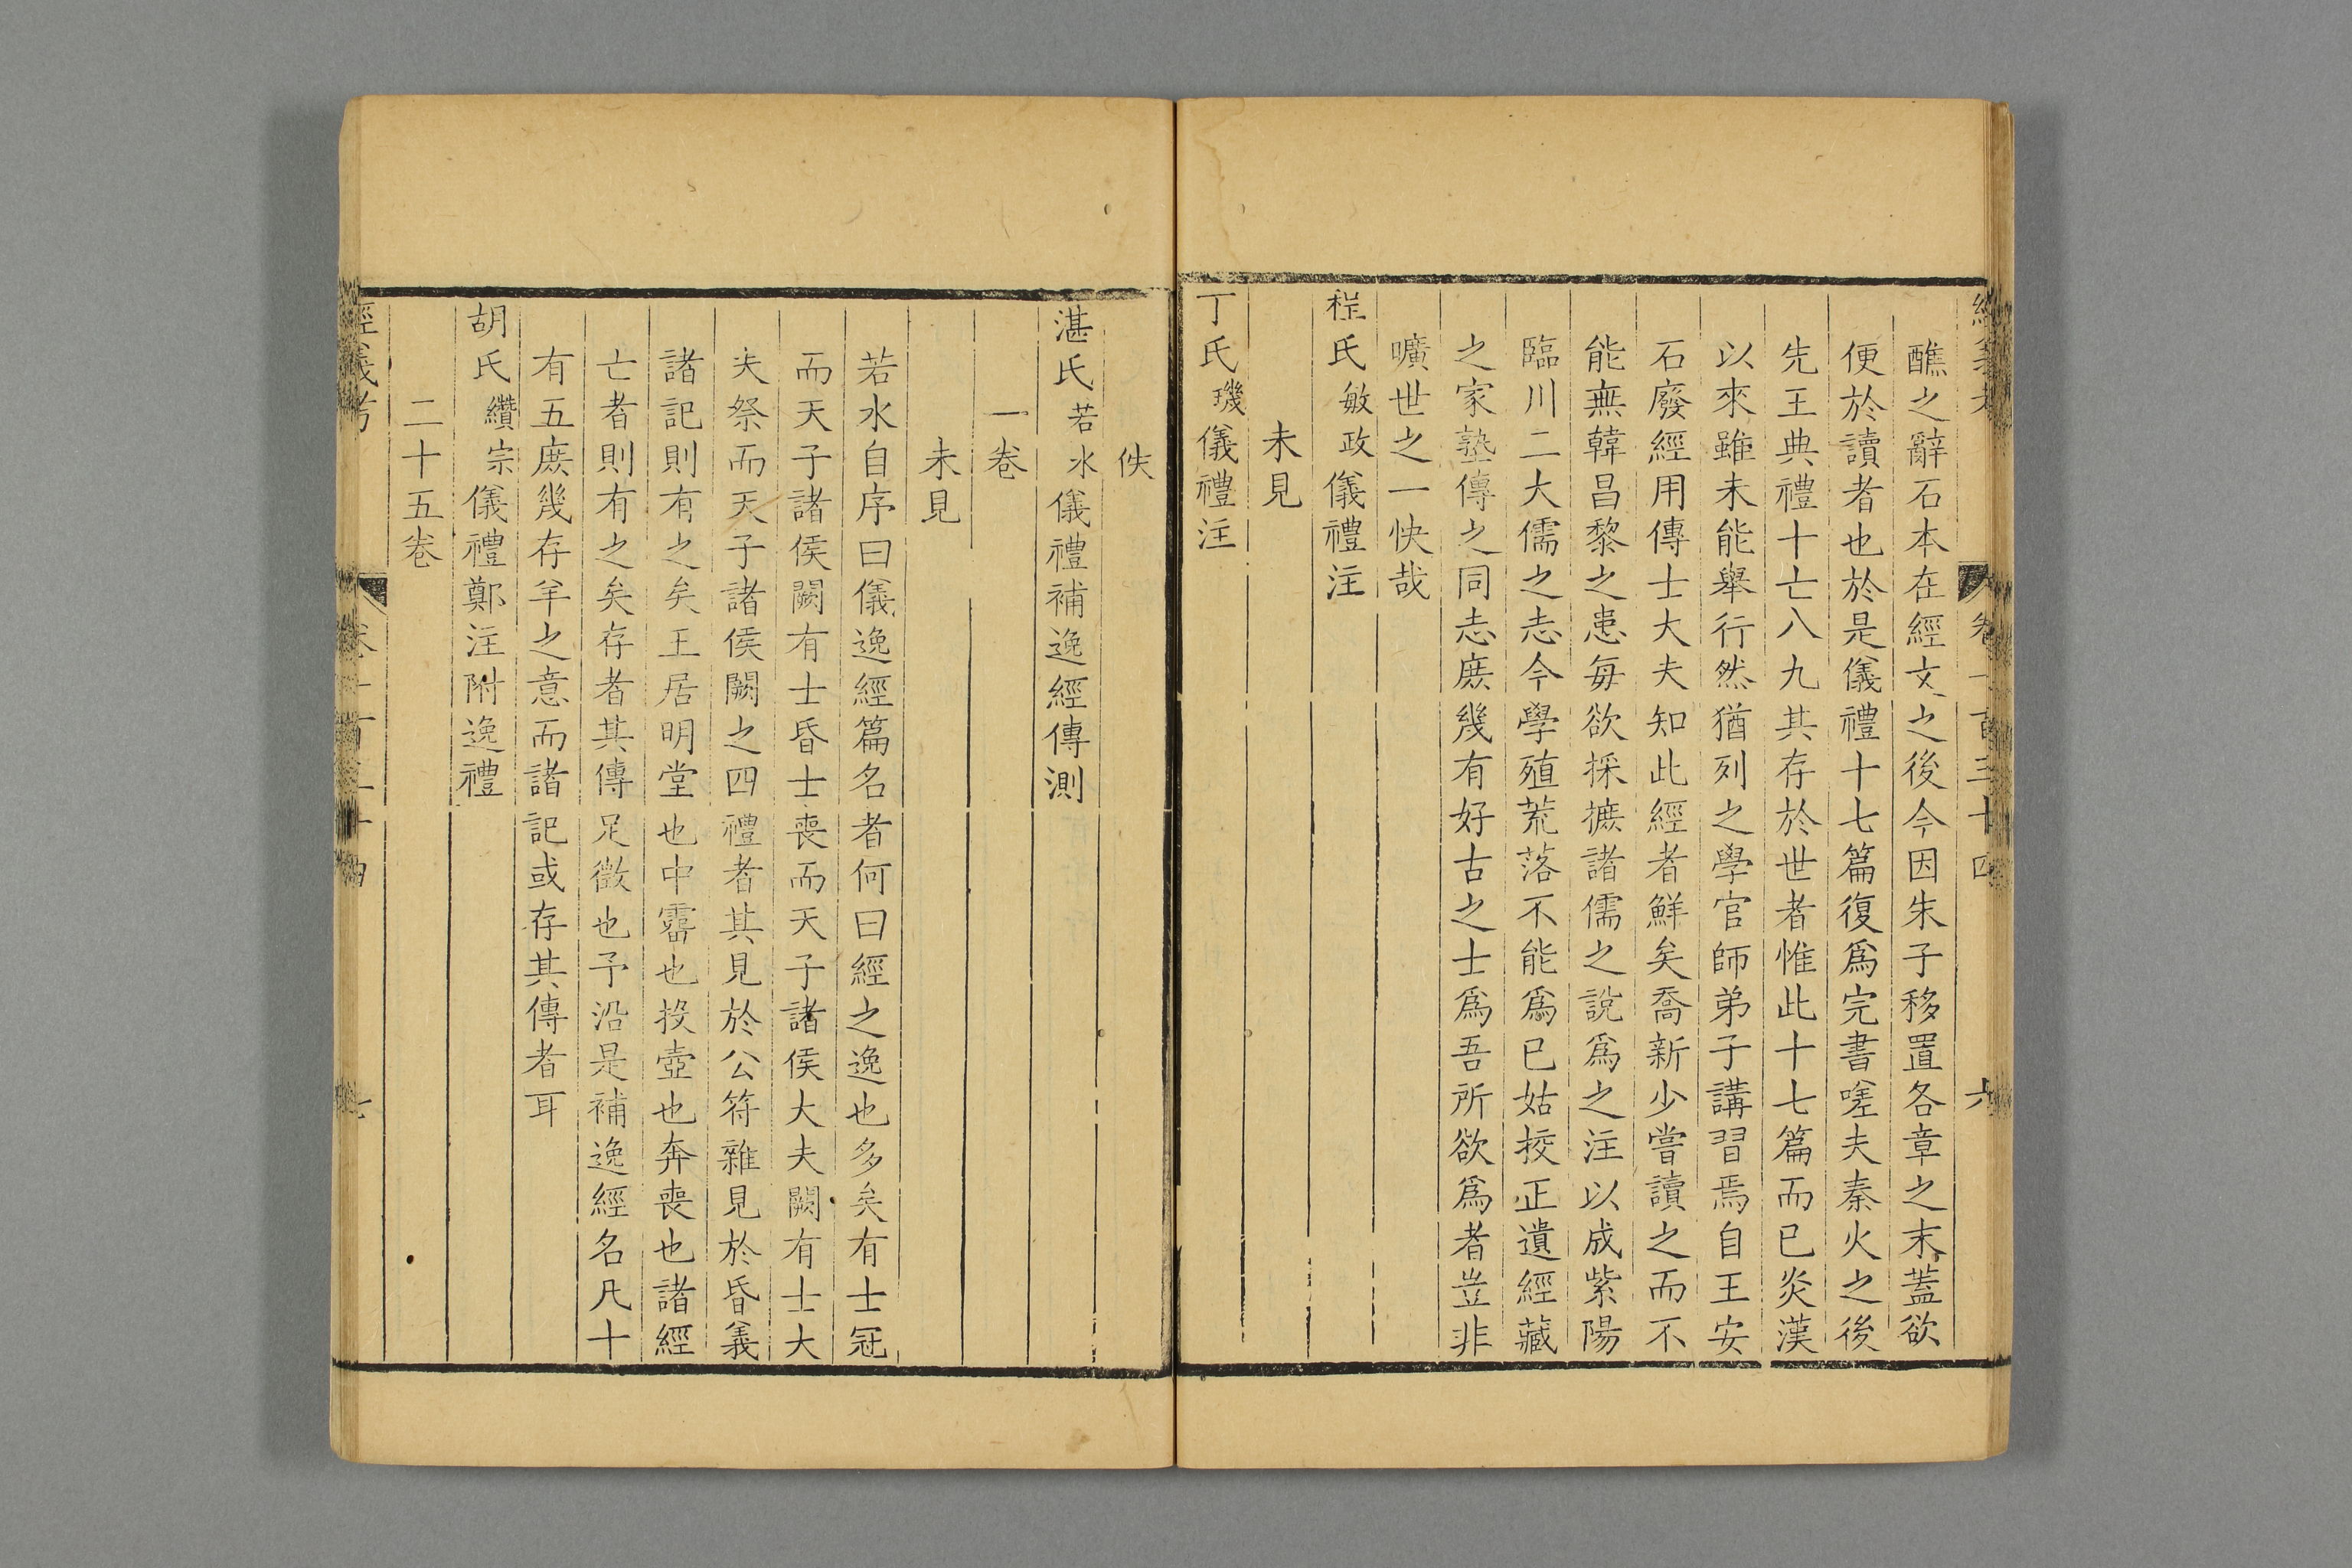 經義考 卷一百三十四 六
醮之辭石本在經文之後今因朱子移置各章之末蓋欲
便於讀者也於是儀禮十七篇復爲完書嗟夫秦火之後
先王典禮十亡八九其存於世者惟此十七篇而已炎漢
以來雖未能舉行然猶列之學官師弟子講習焉自王安
石廢經用傳士大夫知此經者鮮矣喬新少嘗讀之而不
能無韓昌黎之患每欲採摭諸儒之說爲之注以成紫陽
臨川二大儒之志今學殖荒落不能爲已姑挍正遺經藏
之家塾傳之同志庶幾有好古之士爲吾所欲爲者豈非
曠世之一快哉
程氏敏政儀禮注
未見
丁氏璣儀禮注
佚
湛氏若水儀禮補逸經傳測
一卷
未見
若水自序曰儀逸經篇名者何曰經之逸也多矣有士冠
而天子諸侯闕有士昏士喪而天子諸侯大夫闕有士大
夫祭而天子諸侯闕之四禮者其見於公符雜見於昏義
諸記則有之矣王居明堂也中霤也投壺也奔喪也諸經
亡者則有之矣存者其傳足徵也予沿是補逸經名凡十
有五庶幾存羊之意而諸記或存其傳者耳
胡氏纘宗儀禮鄭注附逸禮
二十五卷
經義考 卷一百三十四 七